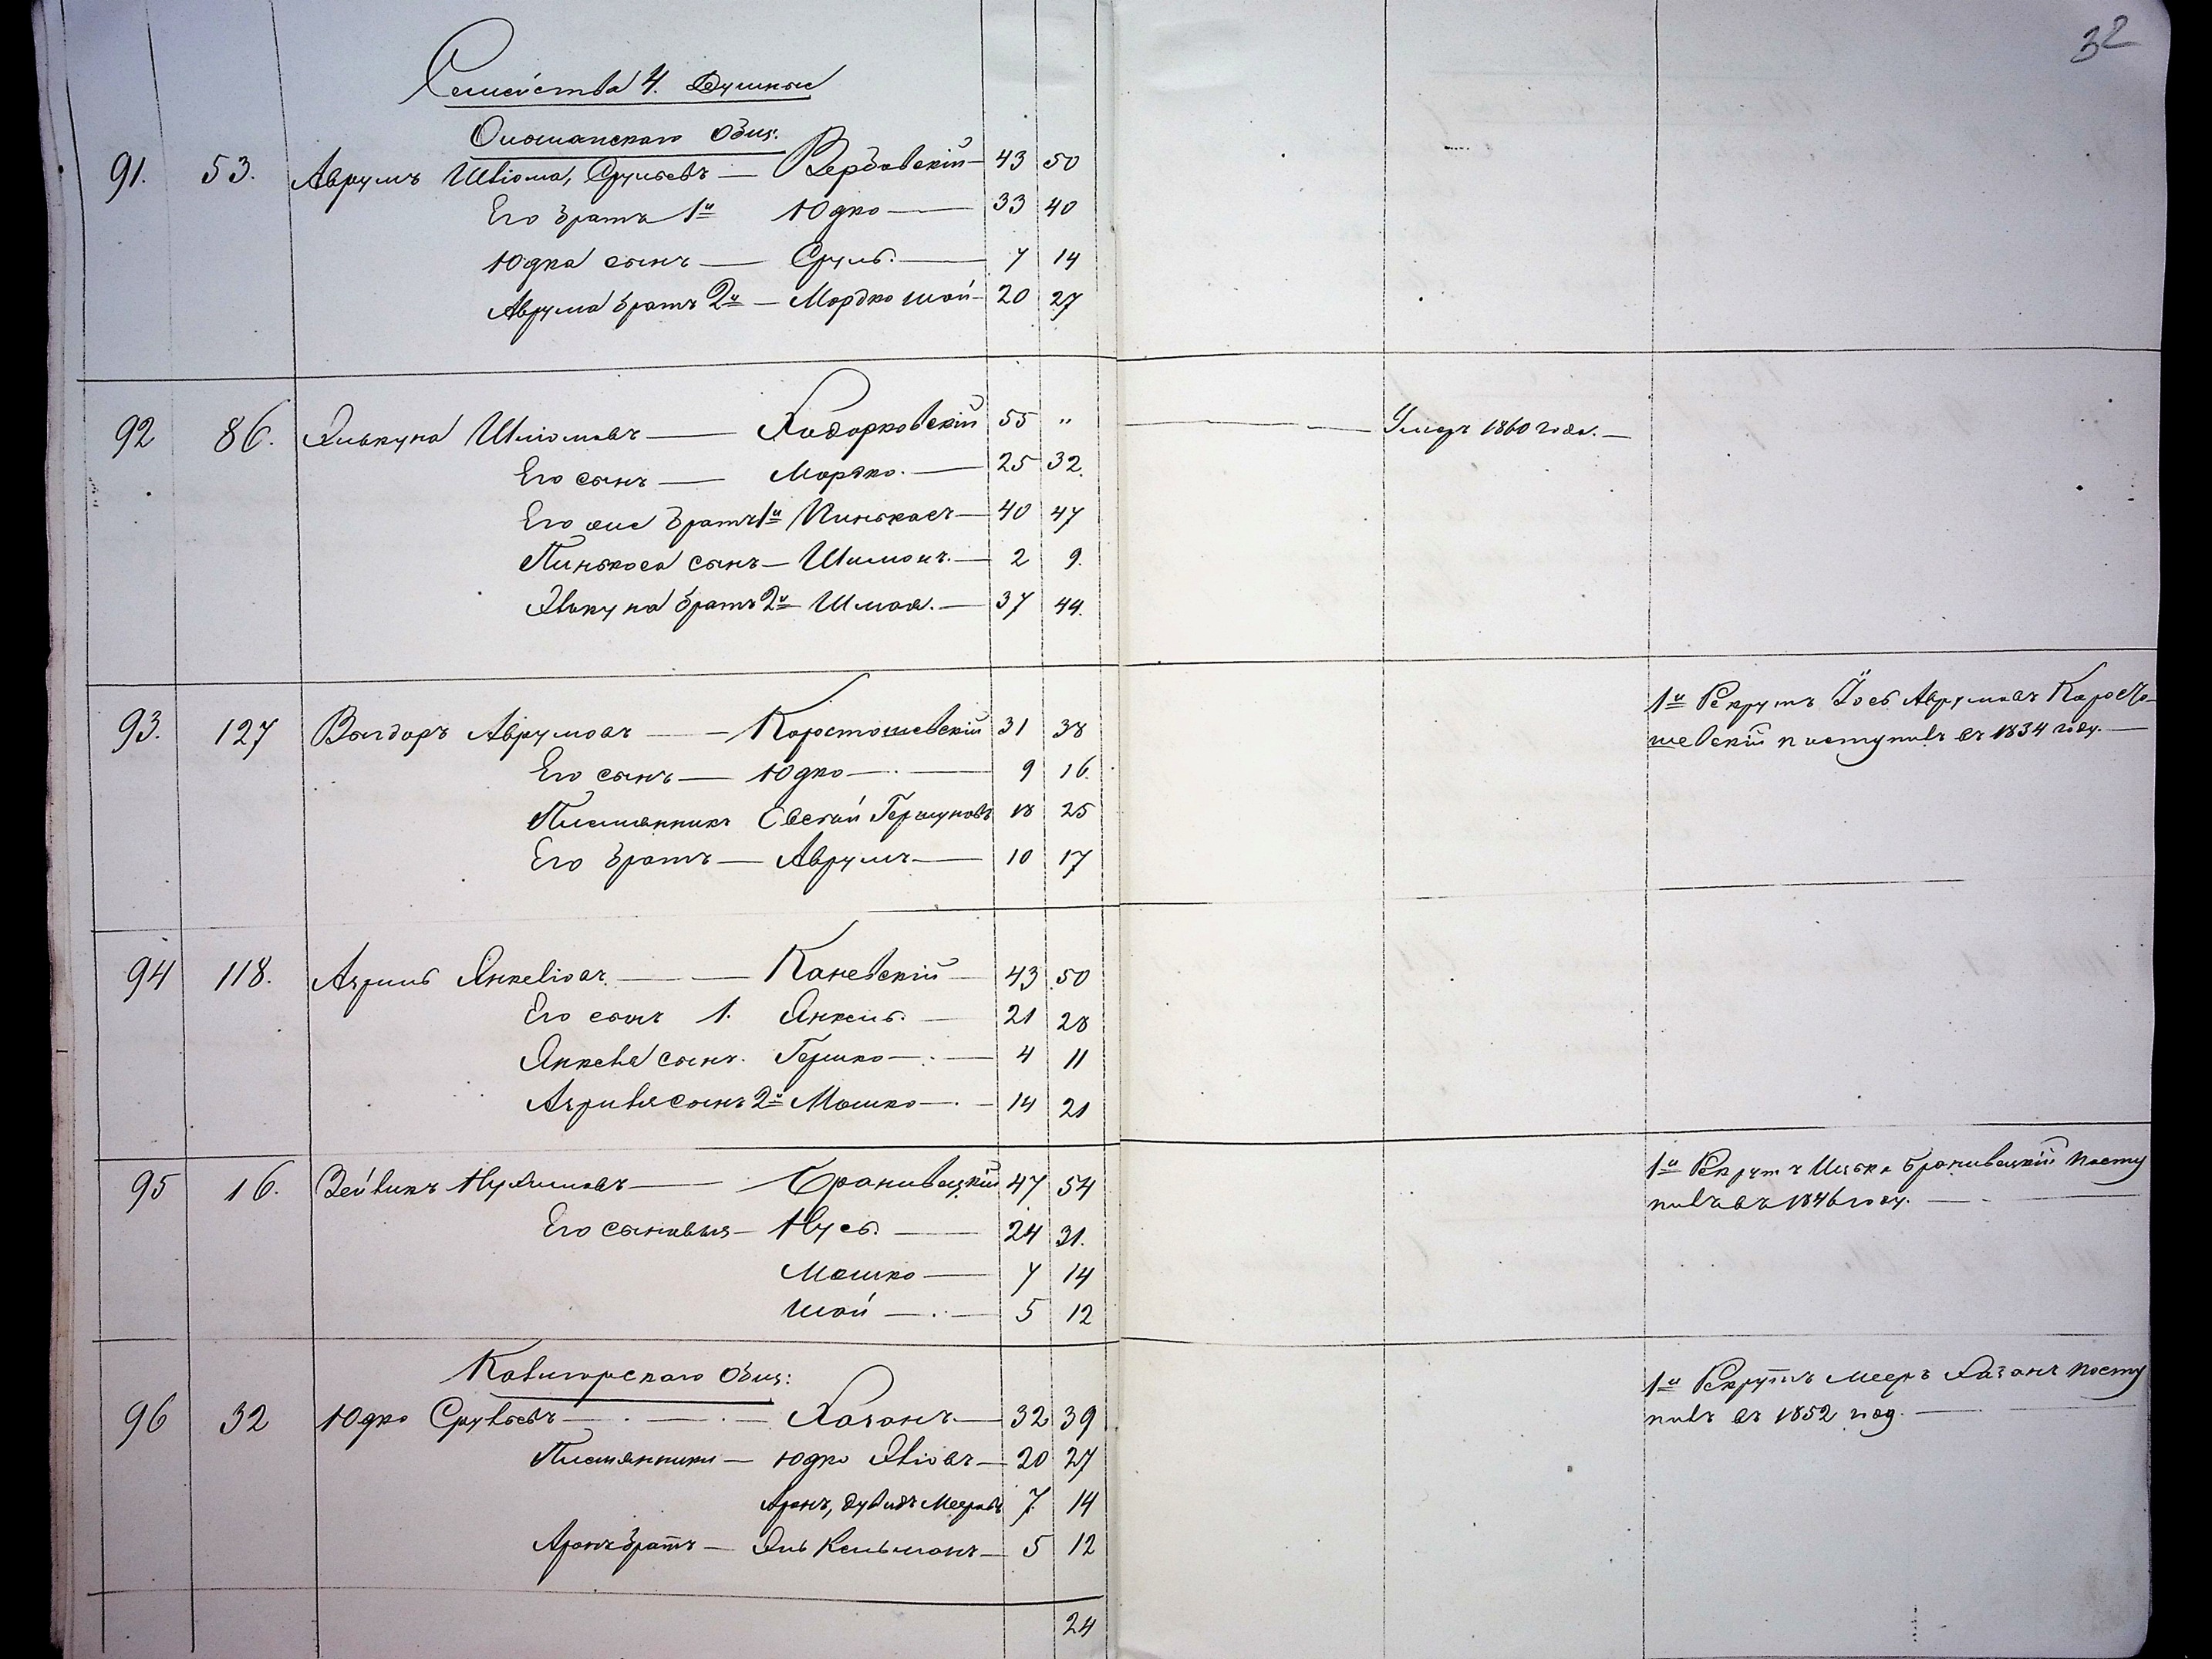 32
Семейства 4. Душныя
Ольшанскаго Общ:
91. 53. Аврумъ Шліома, Срульевъ — Вербовскій — 43 50
Его братъ 1й Юдко — 33 40
Юдка сынъ — Сруль. — 7 14
Аврума братъ 2й — Мордко Шаи — 20 27
92 86. Элькуна Шліомовъ — Ходорковскій 55 " — Умеръ 1860 года. —
Его сынъ — Мордко. — 25 32.
Его же братъ 1й Пинькасъ — 40 47
Пинькаса сынъ — Шимонъ. — 2 9.
Элькуна братъ 2й Шмая. — 37 44.
93. 127 Выгдоръ Аврумовъ — Коростошевскій 31 38
1й Рекрутъ Іось Аврумовъ Коросто-
шевскій поступилъ въ 1834 году. —
Его сынъ — Юдко — 9 16.
Племянникъ Евсей Гершуновъ 18 25
Его братъ — Аврумъ — 10 17
94 118. Азриль Янкеліовъ. — Каневскій — 43 50
Его сынъ 1. Янкель. — 21 28
Янкеля сынъ. Гершко — 4 11
Азриля сынъ 2й Мошко — 14 21
95 16. Зейликъ Нухимовъ — Браниловецкій 47 54
1й Рекрутъ Ицько посту
пилъ въ 1846 году. —
Его сыновья — Нусь. — 24 31.
Мошко — 7 14
Шаи — 5 12
Кавигорскаго Общ:
96 32 Юдко Срульевъ — Хазанъ — 32 39
1й Рекрутъ Мееръ Хазанъ посту
пилъ въ 1852 год. —
Племянники — Юдко Эліовъ — 20 27
Аронъ, Дувидъ Мееровъ 7 14
Аронъ братъ — Эль Кельманъ — 5 12
24